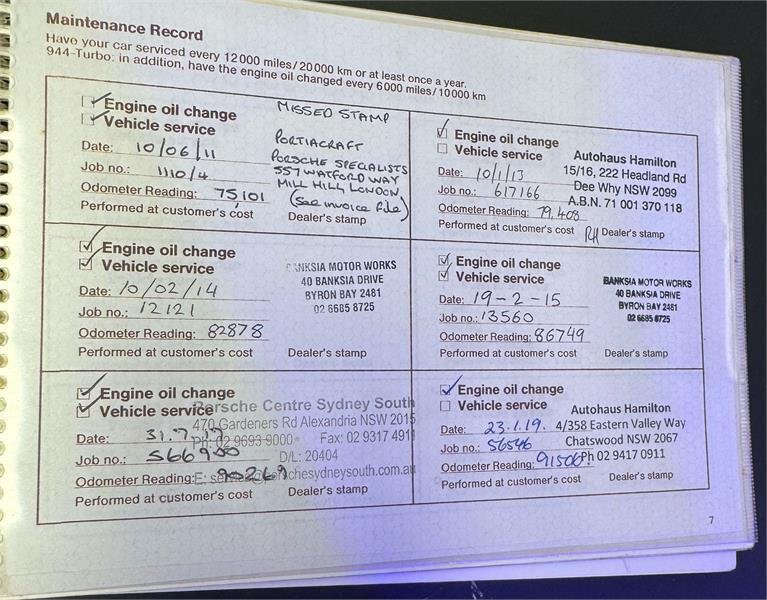 Maintenance Record
Have your car serviced every 12000 miles/20000 km or at least once a year.
944-Turbo: in addition, have the engine oil changed every 6000 miles/10000 km
Engine oil change
Vehicle service
Date: 10/06/11
Job no.: 1110/4
Odometer Reading: 75101
Performed at customer's cost
MISSED STAMP
PORTIACRAFT
PORSCHE SPECIALISTS
557 WATFORD WAY
MILL HILL, LONDON,
(see invoice file)
Dealer's stamp
Engine oil change
Vehicle service
Date: 10/1/13
Job no.: 617166
Odometer Reading: 79,408
Performed at customer's cost
Autohaus Hamilton
15/16, 222 Headland Rd
Dee Why NSW 2099
A.B.N. 71 001 370 118
RH Dealer's stamp
Engine oil change
Vehicle service
Date: 10/02/14
Job no.: 12121
Odometer Reading: 82878
Performed at customer's cost
BANKSIA MOTOR WORKS
40 BANKSIA DRIVE
BYRON BAY 2481
02 6685 8725
Dealer's stamp
Engine oil change
Vehicle service
Date: 19-2-15
Job no.: 13560
Odometer Reading: 86749
Performed at customer's cost
BANKSIA MOTOR WORKS
40 BANKSIA DRIVE
BYRON BAY 2481
02 6685 8725
Dealer's stamp
Engine oil change
Vehicle service
Date: 31.7.17
Job no.: 566900
Odometer Reading: 90269
Performed at customer's cost
Porsche Centre Sydney South
470 Gardeners Rd Alexandria NSW 2015
Ph: 02 9693 9000 Fax: 02 9317 4911
D/L: 20404
E: service@porschesydneysouth.com.au
Dealer's stamp
Engine oil change
Vehicle service
Date: 23.1.19.
Job no.: 56546
Odometer Reading: 91506
Performed at customer's cost
Autohaus Hamilton
4/358 Eastern Valley Way
Chatswood NSW 2067
Ph 02 9417 0911
Dealer's stamp
7